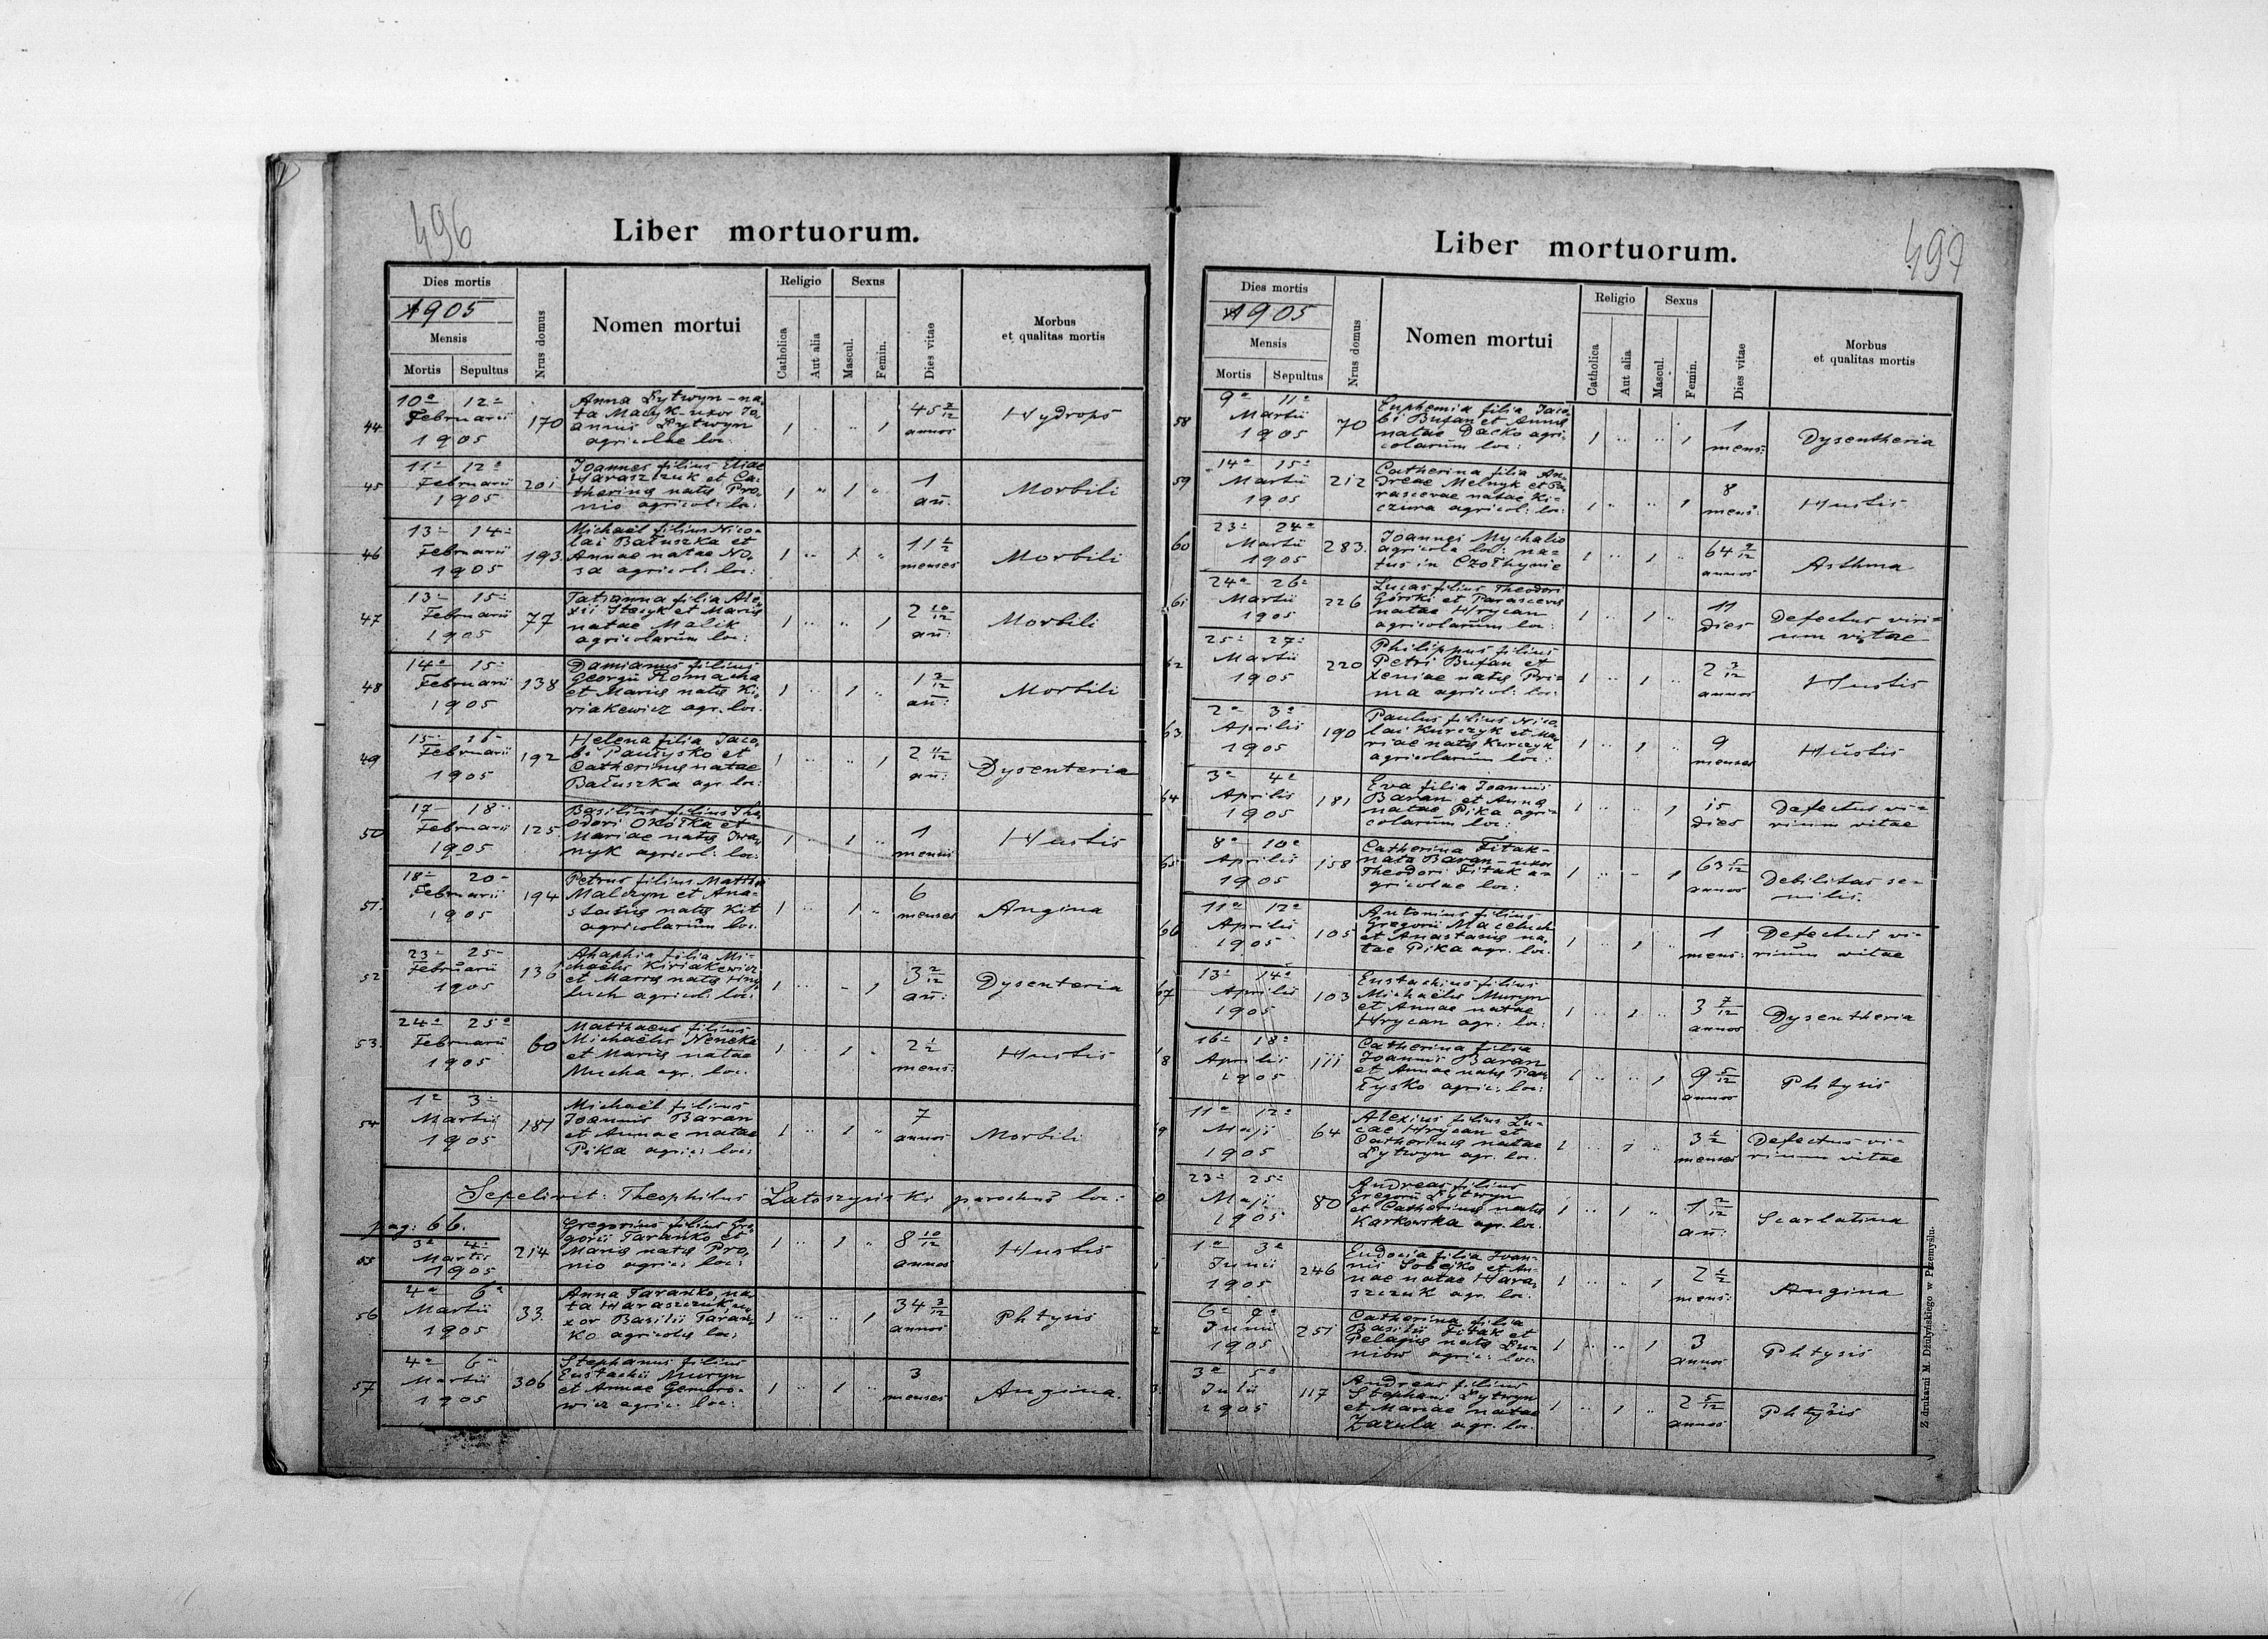 496
Liber mortuorum.
Dies mortis
1905
Mensis
Mortis Sepultus
Nrus domus
Nomen mortui
Religio
Catholica
Aut alia
Sexus
Mascul.
Femin.
Dies vitae
Morbus
et qualitas mortis
44
10a 12a
Februarii
1905
170
Anna Lytwyn - na-
ta Madyk - uxor Jo-
annis Lytwyn
agricolae loc:
1 .. .. 1
45 7/12
annos
Hydrops
45
11a 12a
Februarii
1905
201
Joannes filius Eliae
Haraszczuk et Ca-
therinae natae Pro-
nio agricol: loc:
1 .. 1 ..
1
an̄:
Morbili
46
13a 14a
Februarii
1905
193.
Michaël filius Nico-
lai Bałuszka et
Annae natae No-
sa agricol: loc:
1 .. 1 ..
11 1/2
menses
Morbili
47
13a 15a
Februarii
1905
77
Tatianna filia Ale-
xii Stecyk et Mariae
natae Malik
agricolarum loc:
1 .. .. 1
2 10/12
an̄:
Morbili
48
14a 15a
Februarii
1905
138
Damianus filius
Georgii Romacha
et Mariae natae Ki-
riakewicz agr. loc.
1 .. 1 ..
an̄:
Morbili
49
15a 16a
Februarii
1905
192
Helena filia Jaco-
bi Pautysko et
Catherinae natae
Bałuszka agr. loc:
1 .. .. 1
an̄:
Dysenteria
50
17a 18a
Februarii
1905
125.
Basilius filius The-
odori Okółka et
Mariae natae Iwa-
nyk agricol: loc:
1 .. 1 ..
1
mensis
Hustis
51.
18a 20a
Februarii
1905
194
Petrus filius
Malczyn et Ana-
stasiae natae Kit
agricolarum loc.
1 .. 1 ..
6
menses
Angina
52
23a 25a
Februarii
1905
136
Ahaphia filia Mi-
chaelis Kiriakewicz
et Mariae natae
luch agricol: loc:
1 .. .. 1
3 2/12
an̄:
Dysenteria
53.
24a 25a
Februarii
1905
60
Matthaeus filius
Michaëlis Neneka
et Mariae natae
Mucha agr. loc.
1 .. 1 ..
2 1/2
mens:
Hustis
54
1a 3a
Martii
1905
181
Michaël filius
Joannis Baran
et Annae natae
Pika agric: loc:
1 .. 1 ..
7
annos
Morbili
Sepelivit: Theophilus Latoszynski parochus loc:
pag: 66.
55
3a 4a
Martis
1905
214
Gregorius filius Gre-
gorii Taranko et
Mariae natae Pro-
nio agric: loc:
1 .. 1 ..
8 10/12
annos
Hustis
56
4a 6a
Martii
1905
33.
Anna Taranko, na-
ta Haraszczuk, u-
xor Basilii Taran-
ko agricolae loc:
1 .. .. 1
annos
Phtysis
57
4a 6a
Martii
1905
306
Stephanus filius
Eustachii Muryn
et Annae Gembro-
wicz agric. loc:
1 .. 1 ..
3
menses
Angina.
497
Liber mortuorum.
Dies mortis
1905
Mensis
Mortis Sepultus
Nrus domus
Nomen mortui
Religio
Catholica
Aut alia
Sexus
Mascul.
Femin.
Dies vitae
Morbus
et qualitas mortis
58
9a 11a
Martii
1905
70
Euphemia filia Jaco-
bi Bufan et Annae
natae Dacko agri-
colarum loc:
1 .. .. 1
1
mens:
Dysentheria
59
14a 15a
Martii
1905
212
Catherina filia An-
dreae Melnyk et Pa-
rascevae natae Ki-
czura agricol: loc:
1 .. .. 1
8
mens:
Hustis
60
23a 24a
Martii
1905
283.
Joannes Mychalio
agricola loc: na-
tus in Czołhynie
1 .. 1 ..
64 9/12
annos
Asthma
61
24a 26a
Martii
1905
226
Lucas filius Theodori
Górski et Parascevae
natae Hrycan
agricolarum loc:
1 .. 1 ..
11
dies
Defectus viri-
um vitae
62
25a 27a
Martii
1905
220
Philippus filius
Petri Bufan et
Xeniae natae Pri-
ma agricol: loc:
1 .. 1 ..
2 3/12
annos
Hustis
63
2a 3a
Aprilis
1905
190
Paulus filius Nico-
lai Kurczyk et Ma-
riae natae Kurczyk
agricolarum loc:
1 .. 1 ..
9
menses
Hustis
64
3a 4a
Aprilis
1905
181
Eva filia Joannis
Baran et Annae
natae Pika agri-
colarum loc:
1 .. .. 1
15
dies
Defectus vi-
rium vitae
65
8a 10a
Aprilis
1905
158
Catherina Fitak-
nata Baran - uxor
Theodori Fitak a-
gricolae loc:
1 .. - 1
63 5/12
annos
Debilitas se-
nilis.
66
11a 12a
Aprilis
1905
105
Antonius filius
Gregorii Maceluch
et Anastasiae na-
tae Pika agr. loc.
1 .. 1 ..
1
mens:
Defectus vi-
rium vitae
67
13a 14a
Aprilis
1905
103
Eustachius filius
Michaëlis Muryn
et Annae natae
Hrycan agr: loc:
1 .. 1 ..
3 7/12
annos
Dysentheria
8
16a 18a
Aprilis
1905
111
Catherina filia
Joannis Baran
et Annae natae Pau-
tysko agric: loc:
1 .. .. 1
9 5/12
annos
Phtysis
9
11a 12a
Maji
1905
64
Alexius filius Lu-
cae Hrycan et
Catherinae natae
Lytwyn agr. loc.
1 .. 1 ..
3 1/2
menses
Defectus vi-
rium vitae
0
23a 25a
Maji
1905
80
Andreas filius
Gregorii Lytwyn
et Catherinae natae
Karkowska agr. loc.
1 .. 1 ..
1 2/12
an̄:
Scarlatina
1
1a 3a
Junii
1905
246
Eudocia filia Joan-
nis Sobejko et An-
nae natae Hara-
szczuk agr. loc:
1 .. .. 1
2 1/2
mens:
Angina
2
6a
Junii
1905
251
Catherina filia
Basilii Fitak et
Pelagiae natae Lu-
niow agric: loc:
1 .. .. 1
3
annos
Phtysis
3
3a 5a
Julii
1905
117
Andreas filius
Stephani Lytwyn
et Mariae natae
Zazula agr. loc.
1 .. 1 ..
2 5/12
annos
Phtysis
Z drukarni M. Dżułyńskiego w Przemyślu.